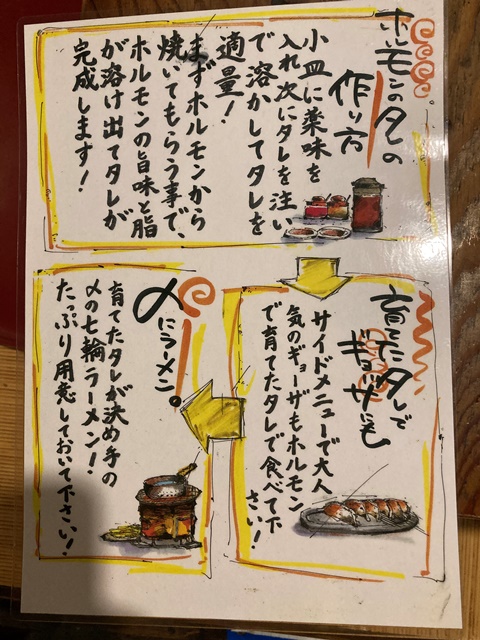 ホルモンのタレの
作り方
小皿に薬味を
入れ次にタレを注い
で溶かしてタレを
適量！
まずホルモンから
焼いてもらう事で、
ホルモンの旨味と脂
が溶け出てタレが
完成します！
育てたタレで
ギョーザにも
サイドメニューで大人
気のギョーザもホルモン
で育てたタレで食べて下
さい！
〆にラーメン。
育てたタレが決め手の
〆の七輪ラーメン！
たっぷり用意しておいて下さい！